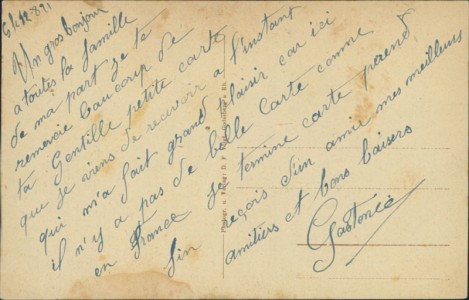 Un gros bonjour
a toutes la famille
de ma part je te
remercie beaucoup de
ta Gentille petite carte
que je viens de recevoir a l'instant
qui m'a fait grand plaisir car ici
il n'y a pas de belle Carte comme
en France je termine carte prend
fin reçois d'un amie mes meilleurs
amitiers et bons baisers
Gastonce